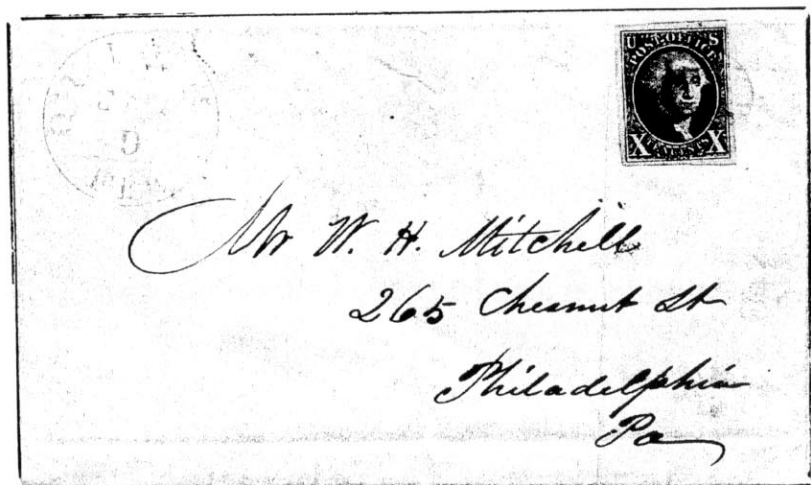 U S
POST OFFICE
X X
Mr W. H. Mitchell
265 Chesnut St
Philadelphia
Pa